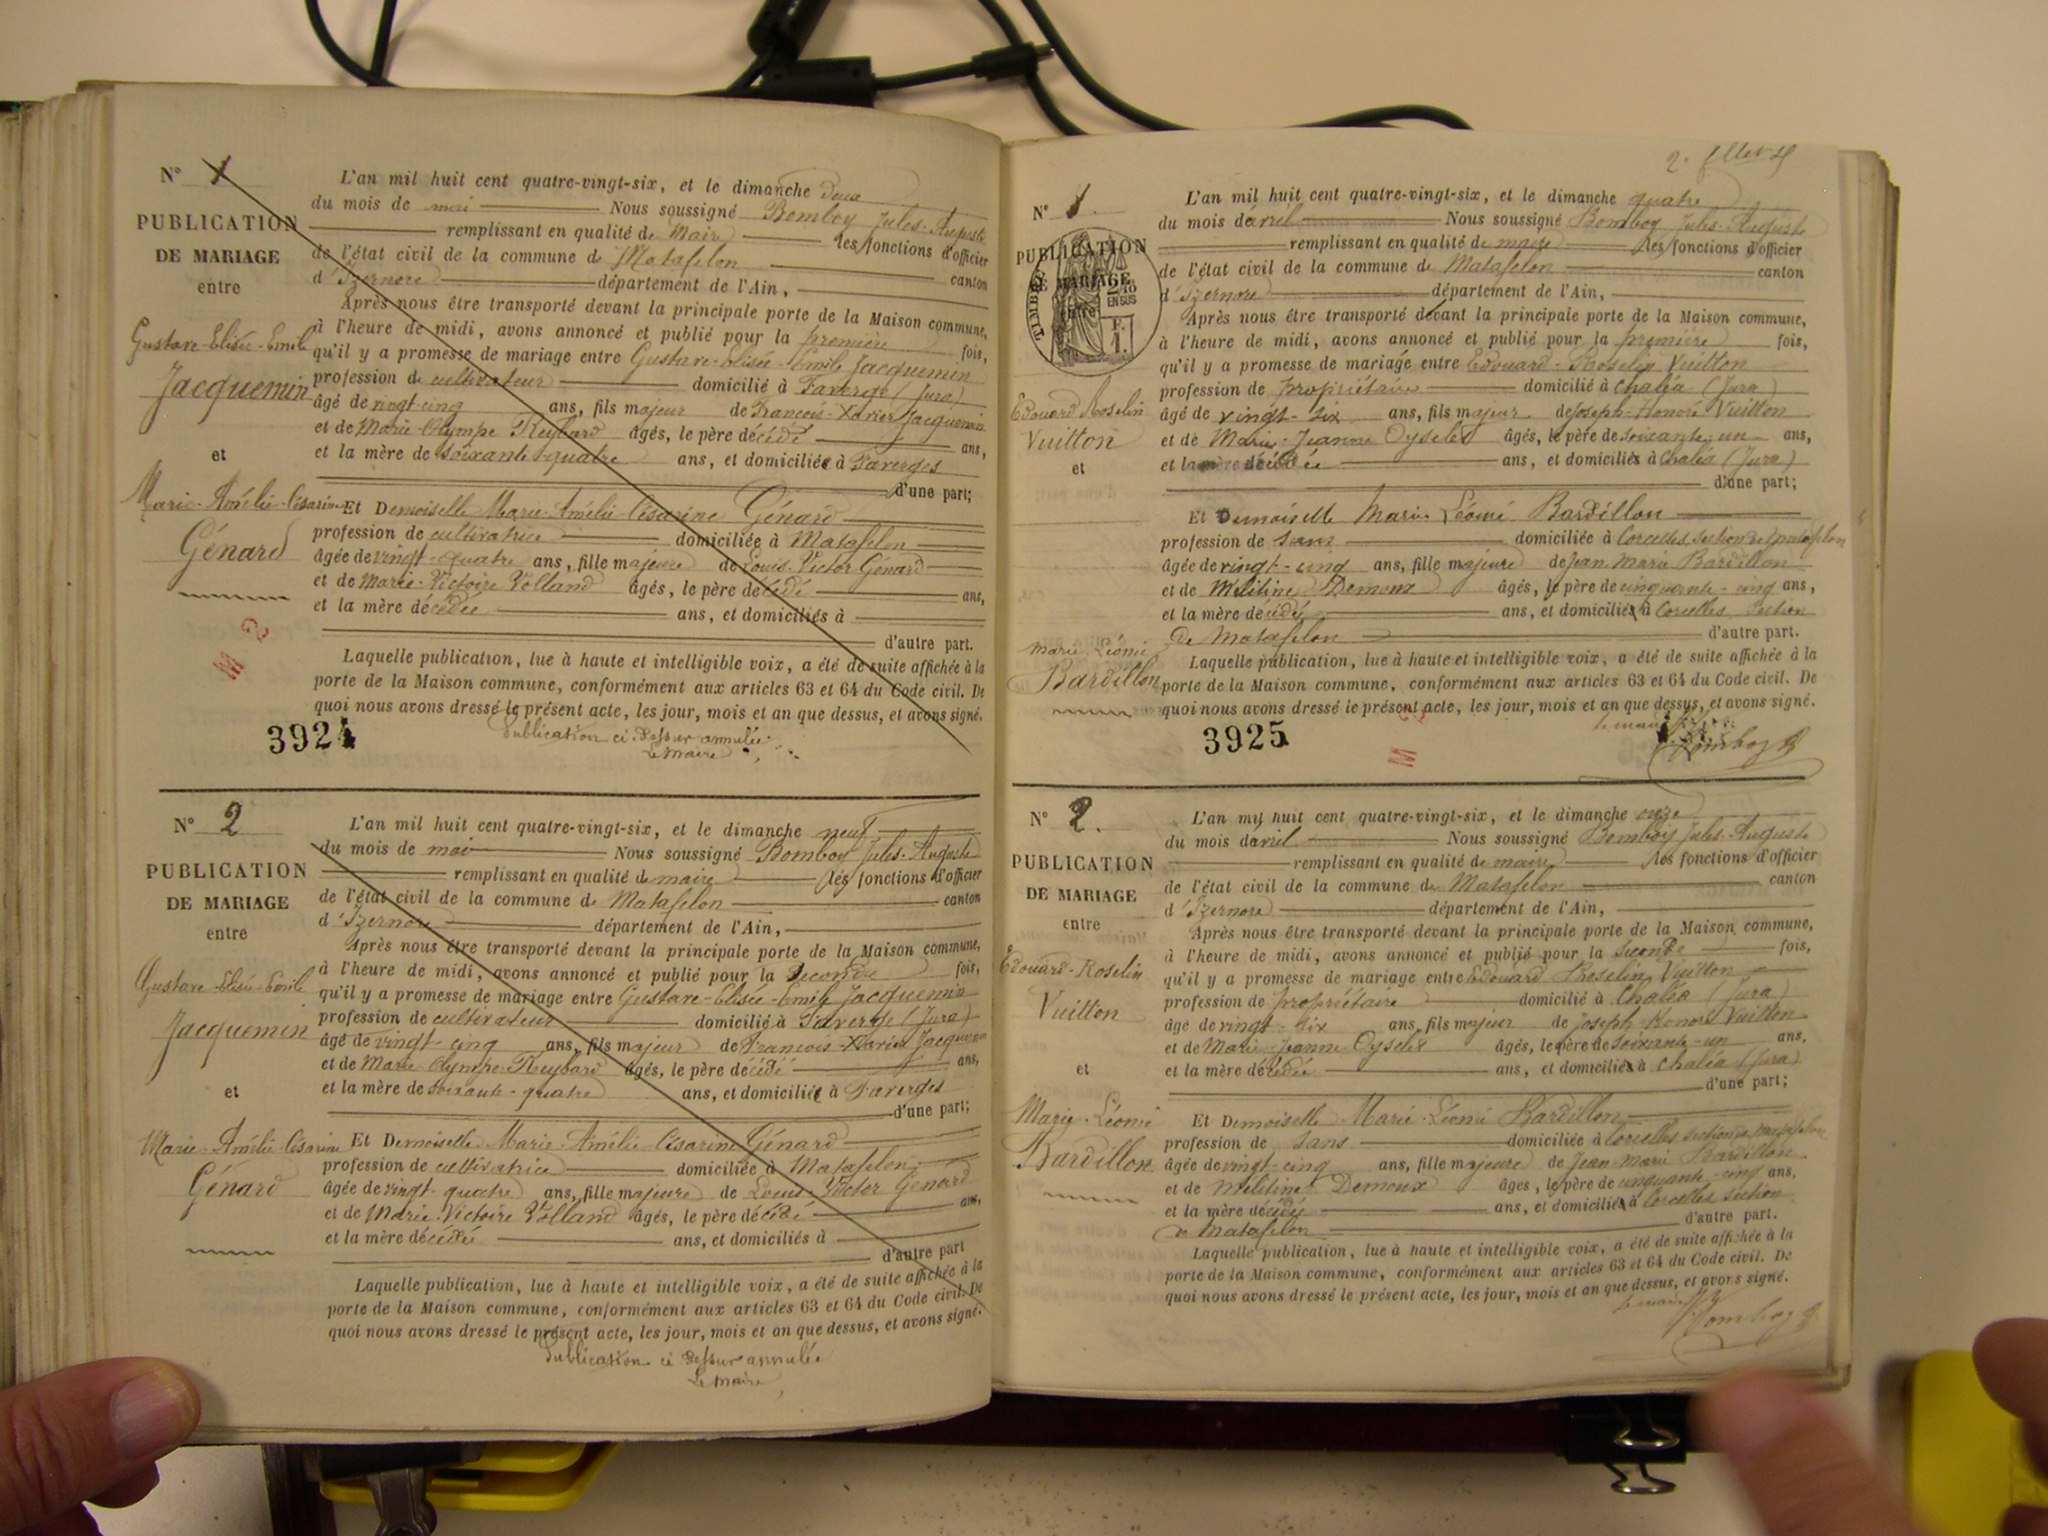 N° 1
PUBLICATION
DE MARIAGE
entre
Gustave-Elisée-Emile
Jacquemin
et
Marie-Amélie-Césarine
Génard
L'an mil huit cent quatre-vingt-six, et le dimanche deux
du mois de mai Nous soussigné Bomboy Jules-Auguste
remplissant en qualité de Maire les fonctions d'officier
de l'état civil de la commune de Matafelon canton
d'Izernore département de l'Ain,
Après nous être transporté devant la principale porte de la Maison commune,
à l'heure de midi, avons annoncé et publié pour la première fois,
qu'il y a promesse de mariage entre Gustave-Elisée-Emile Jacquemin
profession de cultivateur domicilié à Faverge (Jura)
âgé de vingt-cinq ans, fils majeur de François-Xavier Jacquemin
et de Marie-Olympe Reybard âgés, le père décédé ans,
et la mère de soixante-quatre ans, et domiciliée à Faverges
d'une part;
Et Demoiselle Marie-Amélie-Césarine Génard
profession de cultivatrice domiciliée à Matafelon
âgée de vingt-quatre ans, fille majeure de Louis-Victor Génard
et de Marie-Victoire Volland âgés, le père décédé ans,
et la mère décédée ans, et domiciliés à
d'autre part.
Laquelle publication, lue à haute et intelligible voix, a été de suite affichée à la
porte de la Maison commune, conformément aux articles 63 et 64 du Code civil. De
quoi nous avons dressé le présent acte, les jour, mois et an que dessus, et avons signé.
Publication ci dessur annulée
Le Maire
3924
N° 2
PUBLICATION
DE MARIAGE
entre
Gustave-Elisée-Emile
Jacquemin
et
Marie-Amélie-Césarine
Génard
L'an mil huit cent quatre-vingt-six, et le dimanche neuf
du mois de mai Nous soussigné Bomboy Jules-Auguste
remplissant en qualité de maire les fonctions d'officier
de l'état civil de la commune de Matafelon canton
d'Izernore département de l'Ain,
Après nous être transporté devant la principale porte de la Maison commune,
à l'heure de midi, avons annoncé et publié pour la seconde fois,
qu'il y a promesse de mariage entre Gustave-Elisée-Emile Jacquemin
profession de cultivateur domicilié à Faverge (Jura)
âgé de vingt-cinq ans, fils majeur de François-Xavier Jacquemin
et de Marie-Olympe Reybard âgés, le père décédé ans,
et la mère de soixante-quatre ans, et domiciliée à Faverges
d'une part;
Et Demoiselle Marie-Amélie-Césarine Génard
profession de cultivatrice domiciliée à Matafelon
âgée de vingt-quatre ans, fille majeure de Louis-Victor Génard
et de Marie-Victoire Volland âgés, le père décédé ans,
et la mère décédée ans, et domiciliés à
d'autre part
Laquelle publication, lue à haute et intelligible voix, a été de suite affichée à la
porte de la Maison commune, conformément aux articles 63 et 64 du Code civil. De
quoi nous avons dressé le présent acte, les jour, mois et an que dessus, et avons signé.
Publication ci dessur annulée
Le Maire
N° 1.
PUBLICATION
DE MARIAGE
entre
TIMBRE
2/10
EN SUS
F.
1.
Edouard Roselin
Vuitton
et
Marie-Léonie
Bardillon
L'an mil huit cent quatre-vingt-six, et le dimanche quatre
du mois d'avril Nous soussigné Bomboy Jules-Auguste
remplissant en qualité de maire les fonctions d'officier
de l'état civil de la commune de Matafelon canton
d'Izernore département de l'Ain,
Après nous être transporté devant la principale porte de la Maison commune,
à l'heure de midi, avons annoncé et publié pour la première fois,
qu'il y a promesse de mariage entre Edouard-Roselin Vuitton
profession de propriétaire domicilié à Chaléa (Jura)
âgé de vingt-six ans, fils majeur de Joseph-Honoré Vuitton
et de Marie-Jeanne Oyselet âgés, le père de soixante-un ans,
et la mère décédée ans, et domicilié à Chaléa (Jura)
d'une part;
Et Demoiselle Marie-Léonie Bardillon
profession de sans domiciliée à Corcelles section de Matafelon
âgée de vingt-cinq ans, fille majeure de Jean-Marie Bardillon
et de Mélitine Demoux âgés, le père de cinquante-cinq ans,
et la mère décédée ans, et domicilié à Corcelles section
de Matafelon d'autre part.
Laquelle publication, lue à haute et intelligible voix, a été de suite affichée à la
porte de la Maison commune, conformément aux articles 63 et 64 du Code civil. De
quoi nous avons dressé le présent acte, les jour, mois et an que dessus, et avons signé.
le maire
Bomboy
3925
N° 2.
PUBLICATION
DE MARIAGE
entre
Edouard-Roselin
Vuitton
et
Marie-Léonie
Bardillon
L'an mil huit cent quatre-vingt-six, et le dimanche onze
du mois d'avril Nous soussigné Bomboy Jules-Auguste
remplissant en qualité de maire les fonctions d'officier
de l'état civil de la commune de Matafelon canton
d'Izernore département de l'Ain,
Après nous être transporté devant la principale porte de la Maison commune,
à l'heure de midi, avons annoncé et publié pour la seconde fois,
qu'il y a promesse de mariage entre Edouard Roselin Vuitton
profession de propriétaire domicilié à Chaléa (Jura)
âgé de vingt-six ans, fils majeur de Joseph Honoré Vuitton
et de Marie-Jeanne Oyselet âgés, le père de soixante-un ans,
et la mère décédée ans, et domicilié à Chaléa (Jura)
d'une part;
Et Demoiselle Marie-Léonie Bardillon
profession de sans domiciliée à Corcelles section de Matafelon
âgée de vingt-cinq ans, fille majeure de Jean-Marie Bardillon
et de Mélitine Demoux âgés, le père de cinquante-cinq ans,
et la mère décédée ans, et domicilié à Corcelles section
de Matafelon d'autre part.
Laquelle publication, lue à haute et intelligible voix, a été de suite affichée à la
porte de la Maison commune, conformément aux articles 63 et 64 du Code civil. De
quoi nous avons dressé le présent acte, les jour, mois et an que dessus, et avons signé.
le maire
Bomboy